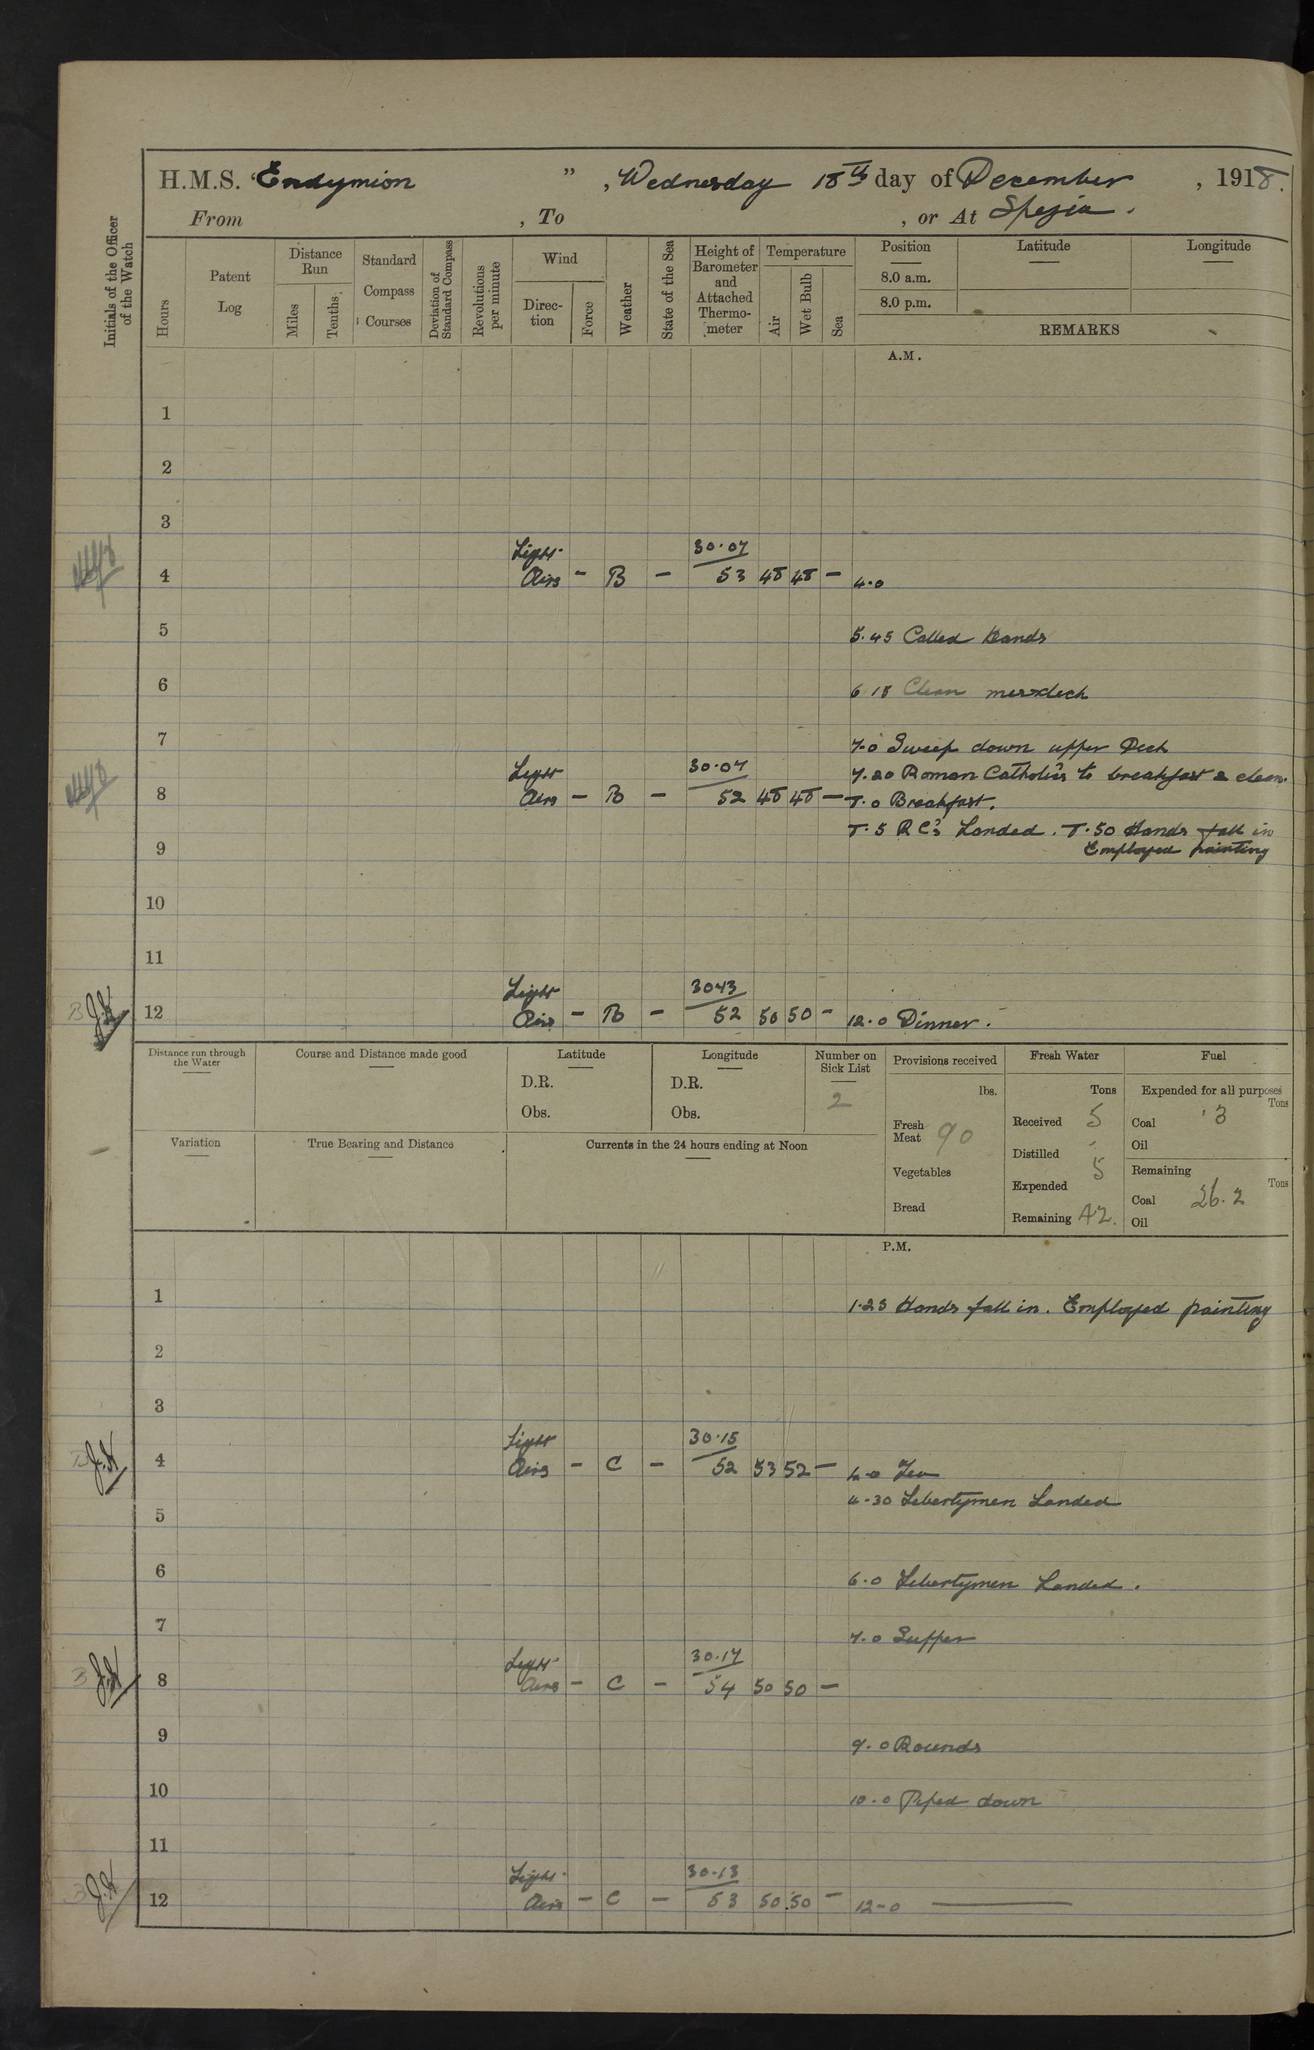 H.M.S. "Endymion", Wednesday 18th day of December, 1918.
From , To , or At Spezia.
Initials of the Officer of the Watch
Hours
Patent Log
Distance Run
Miles
Tenths
Standard Compass Courses
Deviation of Standard Compass
Revolutions per minute
Wind
Direction
Force
Weather
State of the Sea
Height of Barometer and Attached Thermometer
Temperature
Air
Wet Bulb
Sea
Position
Latitude
Longitude
8.0 a.m.
8.0 p.m.
REMARKS
A.M.
1
2
3
Light 30.07
4 Airs - B - 53 48 48 - 4.0
5 5.45 Called Hands
6 6 18 Clean messdeck
7 7.0 Sweep down upper Deck
Light 30.07 7.20 Roman Catholics to breakfast & clean.
8 Airs - B - 52 48 48 - 8.0 Breakfast.
8.5 RC's Landed. 8.50 Hands fall in
9 Employed painting
10
11
Light 3043
12 Airs - B - 52 50 50 - 12.0 Dinner.
Distance run through the Water
Course and Distance made good
Latitude
D.R.
Obs.
Longitude
D.R.
Obs.
Number on Sick List
2
Provisions received
lbs.
Fresh Meat 90
Vegetables
Bread
Fresh Water
Tons
Received 5
Distilled -
Expended 5
Remaining 42.
Fuel
Expended for all purposes
Tons
Coal .3
Oil
Remaining
Tons
Coal 26.2
Oil
Variation
True Bearing and Distance
Currents in the 24 hours ending at Noon
P.M.
1 1.25 Hands fall in. Employed painting
2
3
Light 30.15
J.H. 4 Airs - C - 52 53 52 - 4.0 Tea
4.30 Libertymen Landed
5
6 6.0 Libertymen Landed.
7 7.0 Supper
Light 30.17
J.H. 8 Airs - C - 54 50 50 -
9 9.0 Rounds
10 10.0 Piped down
11
Light 30.13
J.H. 12 Airs - C - 53 50 50 - 12-0